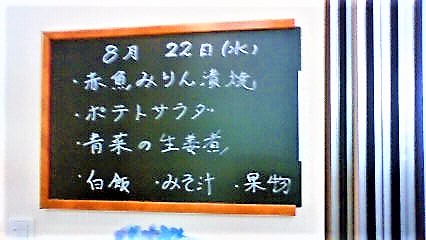 8月 22日(水)
・赤魚みりん漬焼
・ポテトサラダ
・青菜の生姜煮
・白飯 ・みそ汁 ・果物